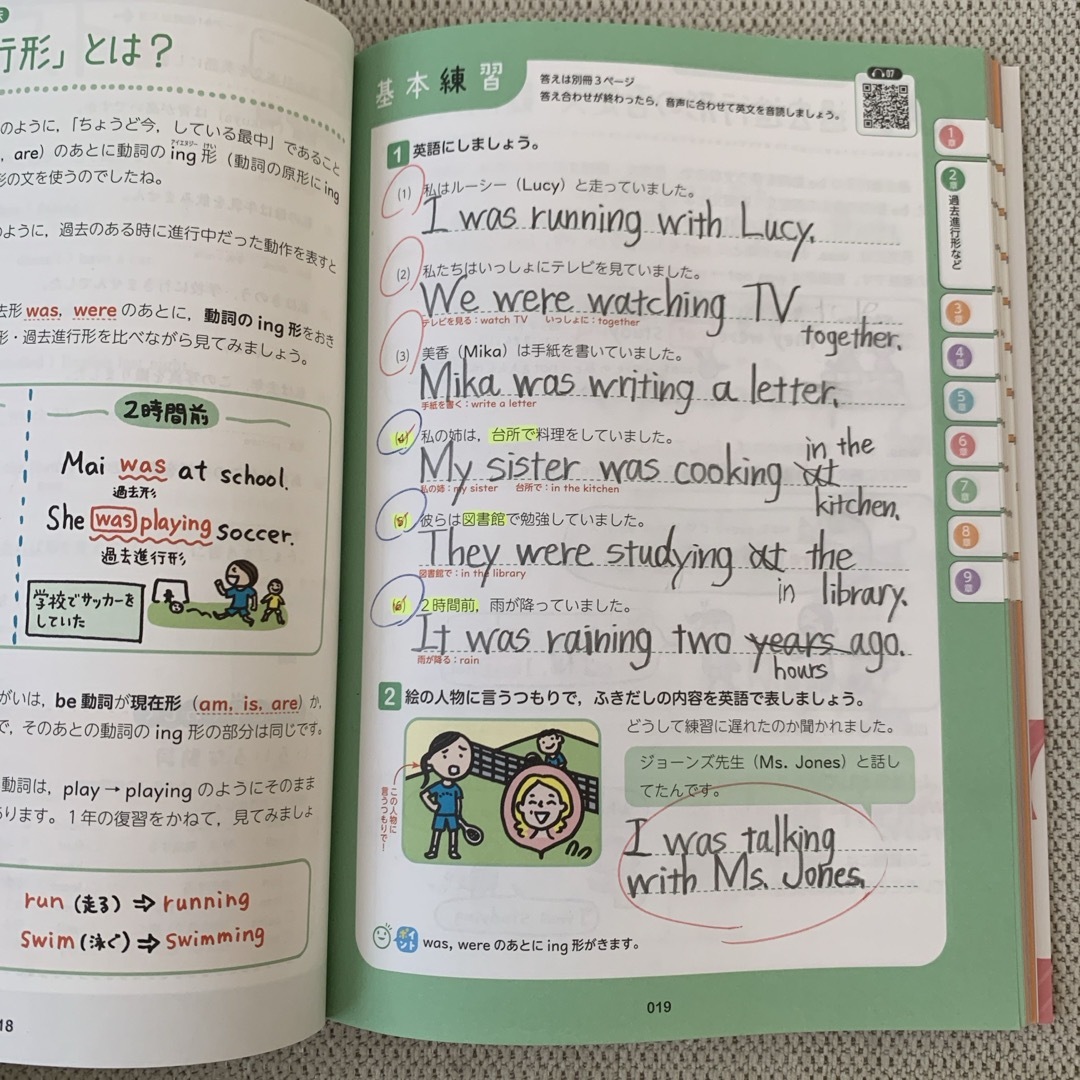 行形」とは？
のように，「ちょうど今，している最中」であること
, are）のあとに動詞の ing 形（動詞の原形に ing
アイエヌジー けい
形の文を使うのでしたね。
のように，過去のある時に進行中だった動作を表すと
去形 was, were のあとに，動詞の ing 形をおき
形・過去進行形を比べながら見てみましょう。
2時間前
Mai was at school.
過去形
She was playing soccer.
過去進行形
学校でサッカーを
していた
がいは，be 動詞が現在形（am, is, are）か，
で，そのあとの動詞の ing 形の部分は同じです。
動詞は，play → playing のようにそのまま
あります。1年の復習をかねて，見てみましょ
run（走る）⇒ running
swim（泳ぐ）⇒ swimming
18
基本練習
答えは別冊3ページ
答え合わせが終わったら，音声に合わせて英文を音読しましょう。
07
1 英語にしましょう。
(1) 私はルーシー（Lucy）と走っていました。
I was running with Lucy.
(2) 私たちはいっしょにテレビを見ていました。
We were watching TV
together.
テレビを見る：watch TV いっしょに：together
(3) 美香（Mika）は手紙を書いていました。
Mika was writing a letter.
手紙を書く：write a letter
(4) 私の姉は，台所で料理をしていました。
in the
My sister was cooking at
kitchen.
私の姉：my sister 台所で：in the kitchen
(5) 彼らは図書館で勉強していました。
They were studying at the
in library.
図書館で：in the library
(6) 2時間前，雨が降っていました。
It was raining two years ago.
hours
雨が降る：rain
2 絵の人物に言うつもりで，ふきだしの内容を英語で表しましょう。
どうして練習に遅れたのか聞かれました。
ジョーンズ先生（Ms. Jones）と話し
てたんです。
この人物に
言うつもりで！
I was talking
with Ms. Jones.
ポイント was, were のあとに ing 形がきます。
019
1章
2章
過去進行形など
3章
4章
5章
6章
7章
8章
9章